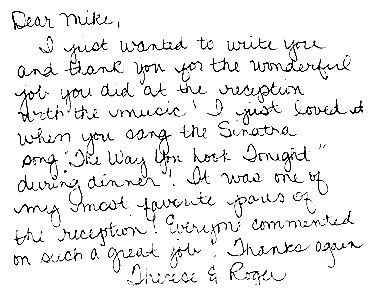 Dear Mike,
I just wanted to write you
and thank you for the wonderful
job you did at the reception
with the music! I just loved it
when you sang the Sinatra
song "The Way You Look Tonight"
during dinner! It was one of
my most favorite parts of
the reception! Everyone commented
on such a great job! Thanks again
Therese & Roger